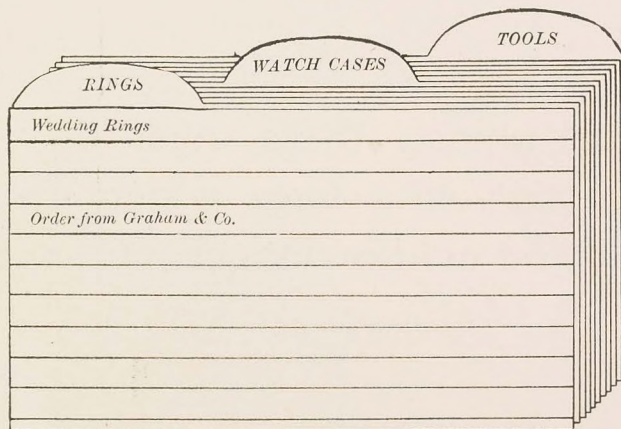 TOOLS
WATCH CASES
RINGS
Wedding Rings
Order from Graham & Co.